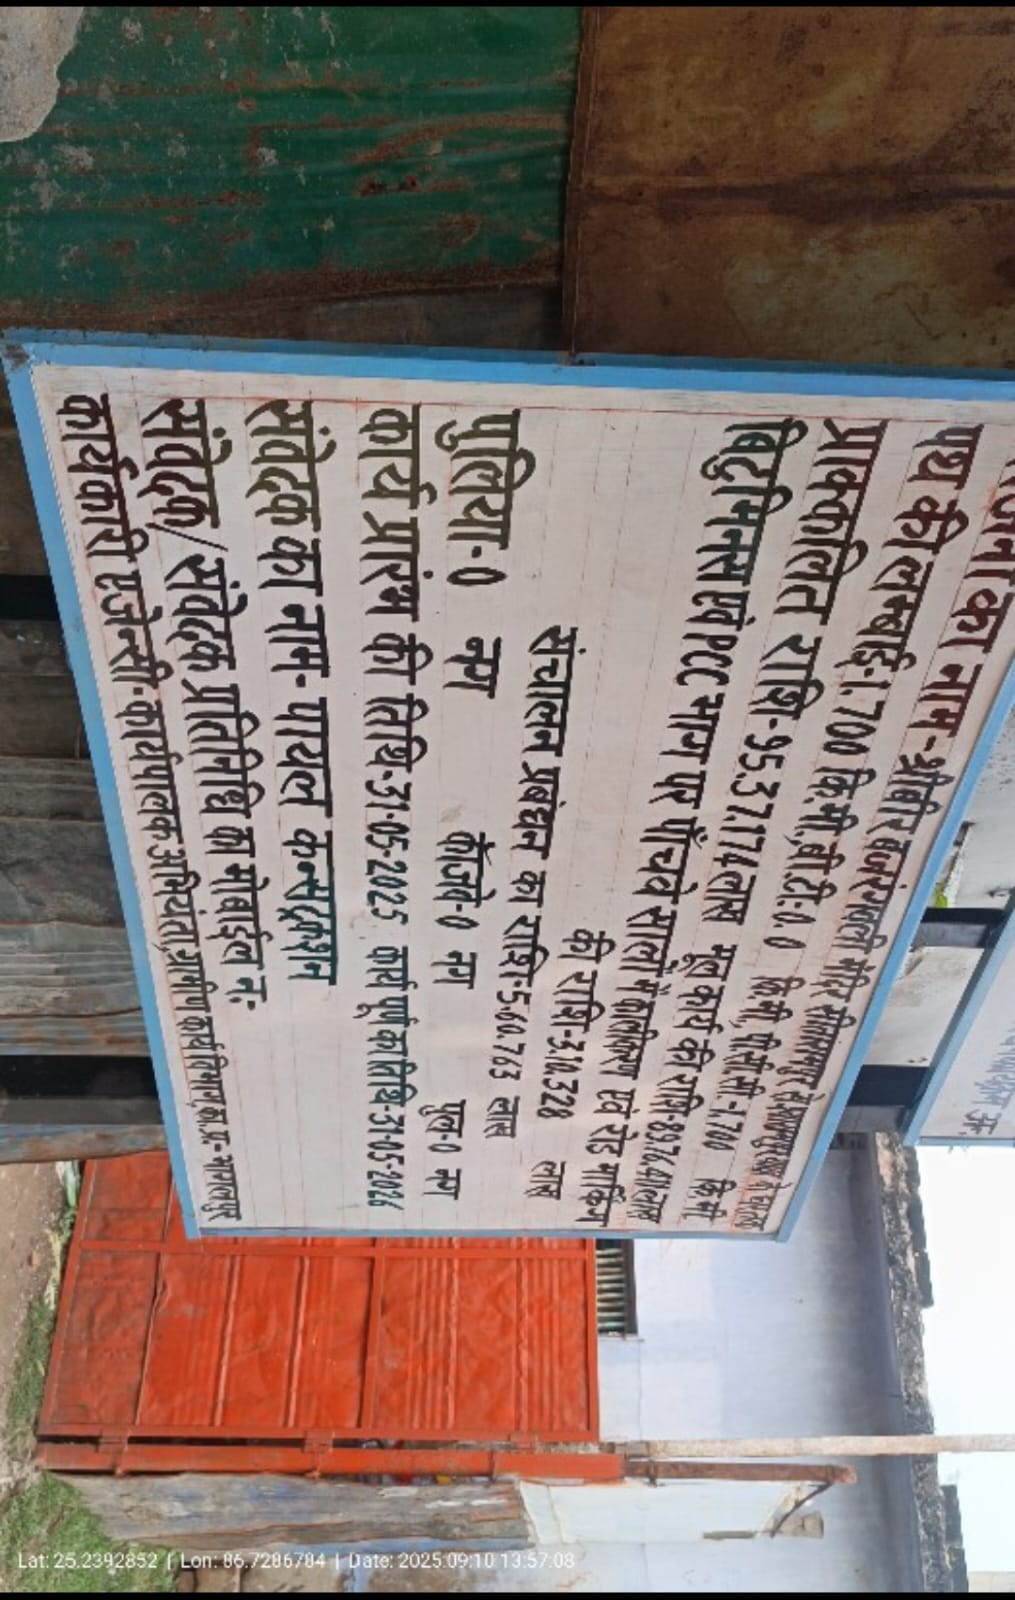 का नाम-श्री वीर बजरंगबली मंदिर सुलतानपुर से
पथ की लम्बाई-1.700 कि.मी, वी.टी:-0.0 कि.मी, पी.सी.सी.-1.700 कि.मी
प्राक्कलित राशि-95.37.174 लाख मूल कार्य की राशि-89.76.411 लाख
बिटुमिनस एवं PCC भाग पर पाँचवे सालों में कालीकरण एवं रोड मार्किंग
की राशि-3.10.328 लाख
संचालन प्रबंधन का राशि-5.60.763 लाख
पुलिया-0 नग कॉजवे-0 नग पुल-0 नग
कार्य प्रारंभ की तिथि-31-05-2025 कार्य पूर्ण का तिथि-31-05-2026
संवेदक का नाम- पायल कन्सट्रक्शन
संवेदक/ संवेदक प्रतिनिधि का मोबाईल न:-
कार्यकारी एजेन्सी-कार्यपालक अभियंता, ग्रामीण कार्य विभाग, का.प्र.- भागलपुर
Lat: 25.2392852 | Lon: 86.7286784 | Date: 2025:09:10 13:57:08